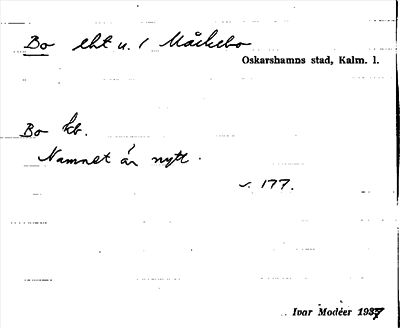 Bo lht u. / Måckebo
Oskarshamns stad, Kalm. l.
Bo kb.
Namnet är nytt.
s. 177.
Ivar Modéer 1937